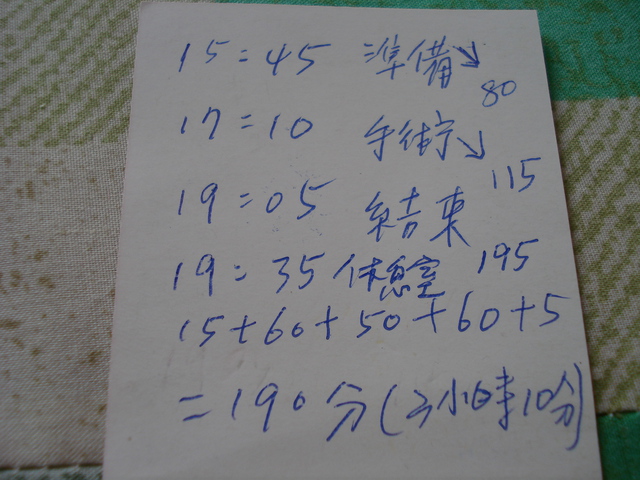 15:45 準備↘
80
17:10 手術ㄘ↘
115
19:05 結束
19:35 休息室 195
15+60+50+60+5
=190分(3小時10分)